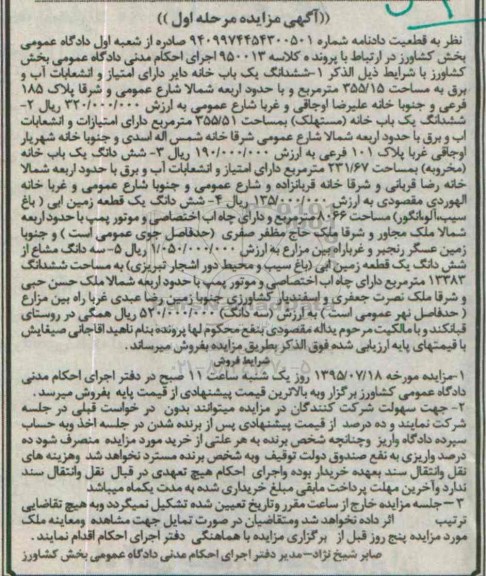 ((آگهی مزایده مرحله اول))
نظر به قطعیت دادنامه شماره ۹۴۰۹۹۷۴۴۵۴۳۰۰۵۰۱ صادره از شعبه اول دادگاه عمومی
بخش کشاورز در ارتباط با پرونده کلاسه ۹۵۰۰۱۳ اجرای احکام مدنی دادگاه عمومی بخش
کشاورز با شرایط ذیل الذکر ۱-ششدانگ یک باب خانه دایر دارای امتیاز و انشعابات آب و
برق به مساحت ۳۵۵/۱۵ مترمربع و با حدود اربعه شمالا شارع عمومی و شرقا پلاک ۱۸۵
فرعی و جنوبا خانه علیرضا اوجاقی و غربا شارع عمومی به ارزش ۳۲۰/۰۰۰/۰۰۰ ریال ۲-
ششدانگ یک باب خانه (مستهلک) بمساحت ۳۵۵/۵۱ مترمربع دارای امتیازات و انشعابات
اب و برق با حدود اربعه شمالا شارع عمومی شرقا خانه شمس اله اسدی و جنوبا خانه شهریار
اوجاقی غربا پلاک ۱۰۱ فرعی به ارزش ۱۹۰/۰۰۰/۰۰۰ ریال ۳- شش دانگ یک باب خانه
(مخروبه) بمساحت ۲۳۱/۶۷ مترمربع دارای امتیاز و انشعابات آب و برق با حدود اربعه شمالا
خانه رضا قربانی و شرقا خانه قربانزاده و شارع عمومی و جنوبا شارع عمومی و غربا خانه
الهوردی مقصودی به ارزش ۱۳۵/۰۰۰/۰۰۰ ریال ۴- شش دانگ یک قطعه زمین ابی (باغ
سیب،آلوانگور) مساحت ۸۰۶۶ مترمربع و دارای چاه اب اختصاصی و موتور پمپ با حدود اربعه
شمالا ملک مجاور و شرقا ملک حاج مظفر صفری (حدفاصل جوی عمومی است) و جنوبا
زمین عسگر رنجبر و غربا راه بین مزارع به ارزش ۱/۰۵۰/۰۰۰/۰۰۰ ریال ۵-سه دانگ مشاع از
شش دانگ یک قطعه زمین ابی (باغ سیب و محیط دور اشجار تبریزی) به مساحت ششدانگ
۱۳۳۸۳ مترمربع دارای چاه اب اختصاصی و موتور پمپ با حدود اربعه شمالا ملک حسن حبی
و شرقا ملک نصرت جعفری و اسفندیار کشاورزی جنوبا زمین رضا عبدی غربا راه بین مزارع
(حدفاصل نهر عمومی است) به ارزش (سه دانگ) ۵۲۰/۰۰۰/۰۰۰ ریال همگی در روستای
قبانکند و با مالکیت مرحوم یداله مقصودی بنفع محکوم لها پرونده بنام ناهید اقاجانی صیفایش
با قیمتهای پایه ارزیابی شده فوق الذکر بطریق مزایده بفروش میرساند.
شرایط فروش
۱-مزایده مورخه ۱۳۹۵/۰۷/۱۸ روز یک شنبه ساعت ۱۱ صبح در دفتر اجرای احکام مدنی
دادگاه عمومی کشاورز برگزار وبه بالاترین قیمت پیشنهادی از قیمت پایه بفروش میرسد.
۲- جهت سهولت شرکت کنندگان در مزایده میتوانند بدون در خواست قبلی در جلسه
شرکت نمایند و ده درصد از قیمت پیشنهادی پس از برنده شدن در جلسه اخذ وبه حساب
سپرده دادگاه واریز وچنانچه شخص برنده به هر علتی از خرید مورد مزایده منصرف شود ده
درصد واریزی به نفع صندوق دولت توقیف وبه شخص برنده مسترد نخواهد شد وهزینه های
نقل وانتقال سند بعهده خریدار بوده واجرای احکام هیچ تعهدی در قبال نقل وانتقال سند
ندارد وآخرین مهلت پرداخت مابقی مبلغ خریداری شده به مدت یکماه میباشد
۳-جلسه مزایده خارج از ساعت مقرر وتاریخ تعیین شده تشکیل نمیگردد وبه هیچ تقاضایی
ترتیب اثر داده نخواهد شد ومتقاضیان در صورت تمایل جهت مشاهده ومعاینه ملک
مورد مزایده پنج روز قبل از برگزاری مزایده با هماهنگی دفتر اجرای احکام اقدام نمایند.
صابر شیخ نژاد-مدیر دفتر اجرای احکام مدنی دادگاه عمومی بخش کشاورز